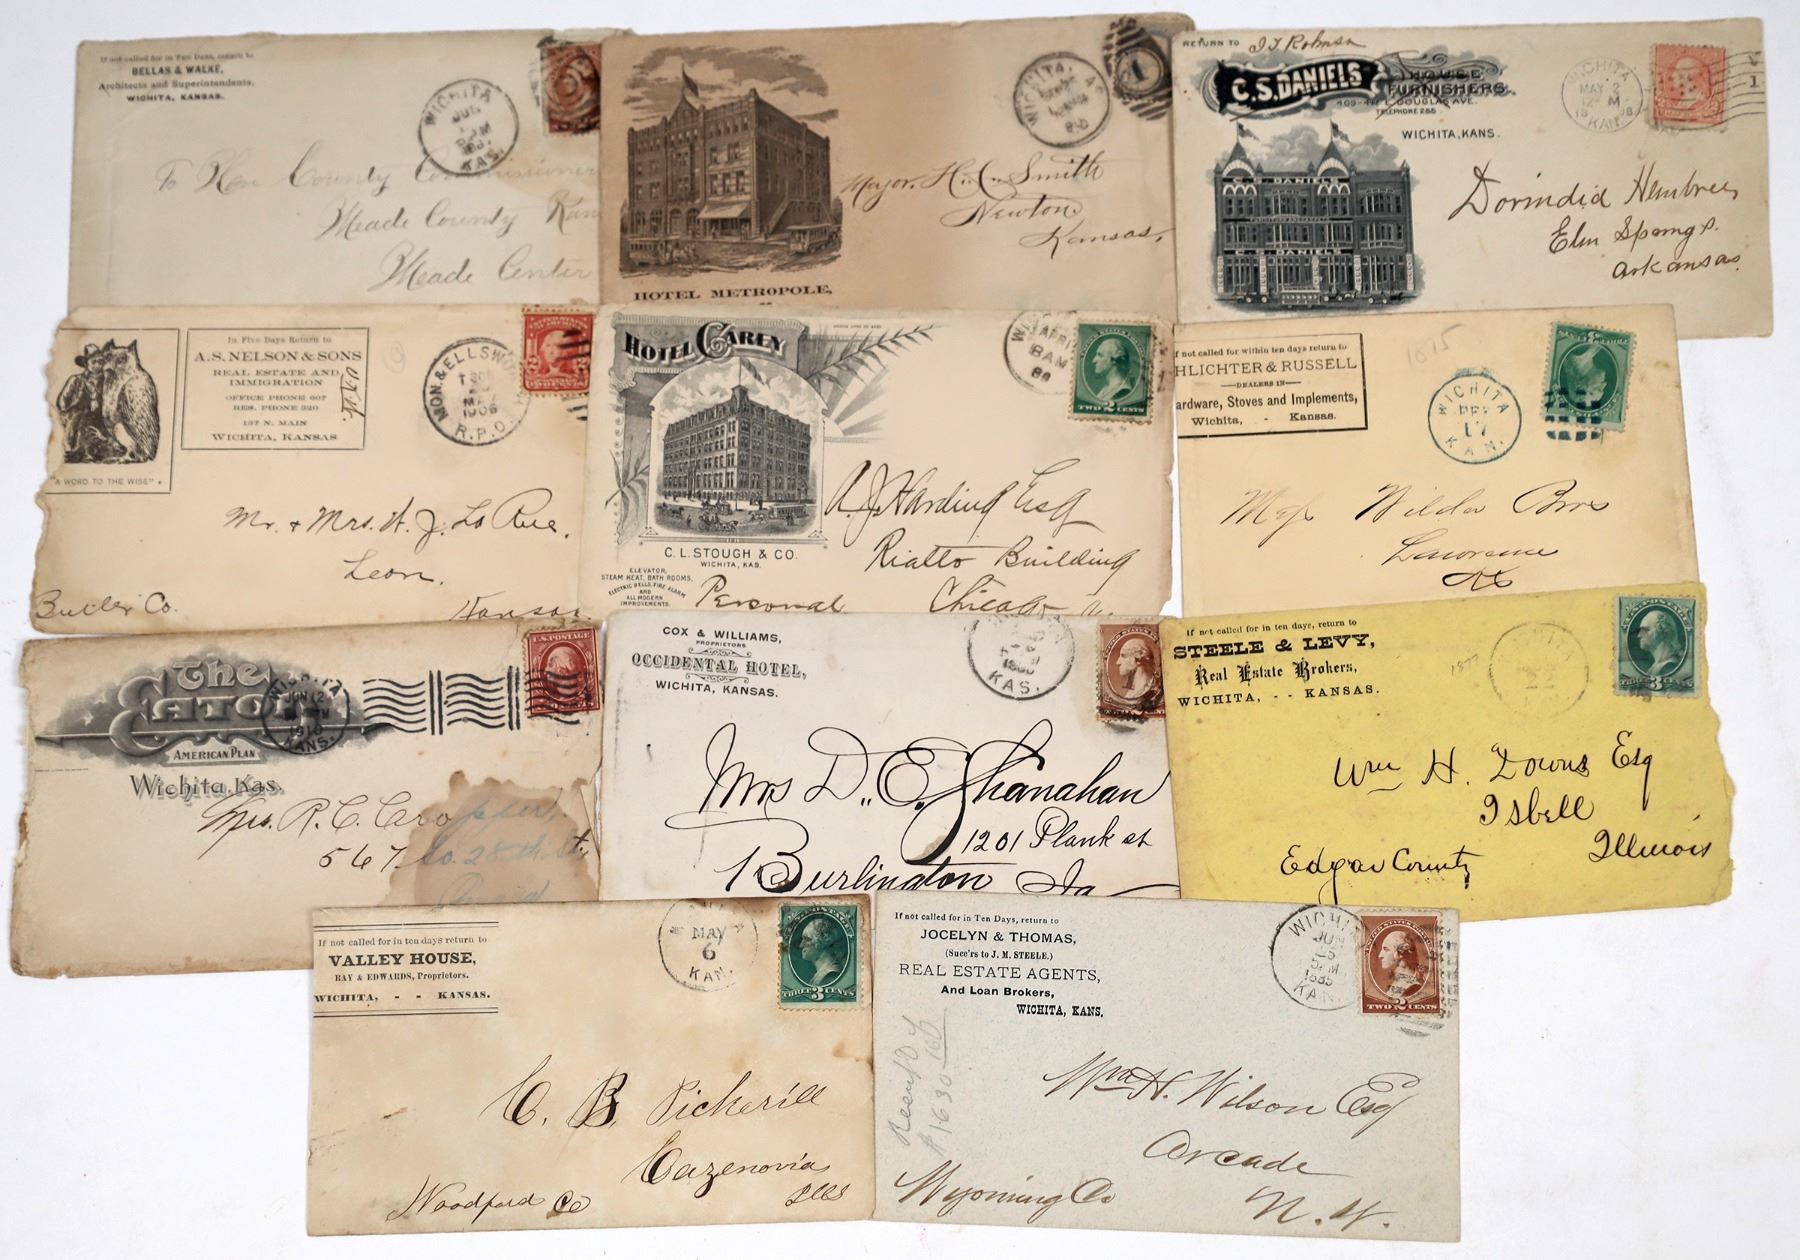 If not called for in Ten Days, return to
BELLAS & WALKE,
Architects and Superintendents,
WICHITA, KANSAS.
WICHITA
JUN
KAS.
To Hon County Commissioners
Meade County Kan
Meade Center
WICHITA,
HOTEL METROPOLE,
Major. H. C. Smith
Newton
Kansas,
RETURN TO
C. S. DANIELS
HOUSE
FURNISHERS.
409-411 E. DOUGLAS AVE.
TELEPHONE 285
WICHITA, KANS.
C. S. DANIELS
WICHITA
MAY 2
12 M
KAN.
1
Dorindid Hembree
Elm Springs.
Arkansas.
In Five Days Return to
A. S. NELSON & SONS
REAL ESTATE AND
IMMIGRATION
OFFICE PHONE 607
RES. PHONE 320
137 N. MAIN
WICHITA, KANSAS
"A WORD TO THE WISE".
MON & ELLSWO
MAY
1906
R.P.O.
TWO CENTS
Mr. & Mrs. H. J. La Rue,
Leon.
Butler Co.
Kansas
HOTEL CAREY
C. L. STOUGH & CO.
WICHITA, KAS.
ELEVATOR,
STEAM HEAT, BATH ROOMS,
ELECTRIC BELLS, FIRE ALARM
AND
ALL MODERN
IMPROVEMENTS.
APR
8 AM
TWO 2 CENTS
A. J. Harding Esq
Rialto Building
Personal
Chicago
1875
f not called for within ten days return to
HLICHTER & RUSSELL
DEALERS IN
ardware, Stoves and Implements,
Wichita, - Kansas.
WICHITA
17
KAN.
Wilder Bros
Lawrence
The
Eaton
AMERICAN PLAN
Wichita, Kas.
WICHITA
JUN 12
1910
KANS.
U.S. POSTAGE
Mrs. R. C. Cropper,
567 So. 28th St,
COX & WILLIAMS,
PROPRIETORS
OCCIDENTAL HOTEL,
WICHITA, KANSAS.
KAS.
Mrs D. E. Shanahan
1201 Plank st
Burlington Ia
If not called for in ten days, return to
STEELE & LEVY,
Real Estate Brokers,
WICHITA, - - KANSAS.
1877
22
THREE 3 CENTS
Wm H. Downs Esq
Isbell
Edgar County
Illinois
If not called for in ten days return to
VALLEY HOUSE,
RAY & EDWARDS, Proprietors.
WICHITA, - - KANSAS.
MAY
6
KAN.
THREE 3 CENTS
C. B. Pickerill
Cazenovia
Woodford Co
Ills
If not called for in Ten Days, return to
JOCELYN & THOMAS,
(Succ'rs to J. M. STEELE.)
REAL ESTATE AGENTS,
And Loan Brokers,
WICHITA, KANS.
WICHITA
JUN
15
5 PM
1885
KAN.
TWO 2 CENTS
Wm H. Wilson Esq
Arcade
Wyoming Co
N. Y.